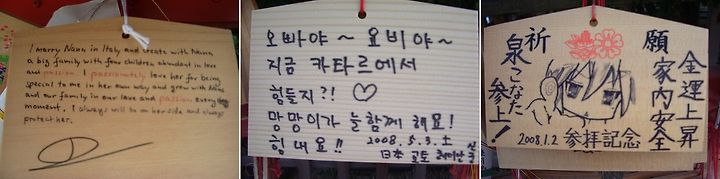 I marry Nana in Italy and create with Nana
a big family with four children abundant in love
and passion. I passionately love her for being
special to me in her own way and grow with Nana
and our family in our love and passion every
moment. I always will be on her side and always
protect her.
오빠야~ 요비야~
지금 카타르에서
힘들지?! ♡
망망이가 늘 함께 해요!
힘내요!! 2008.5.3.土
日本
金運上昇
家内安全
祈願
泉こなた
参上!
2008.1.2 参拝記念